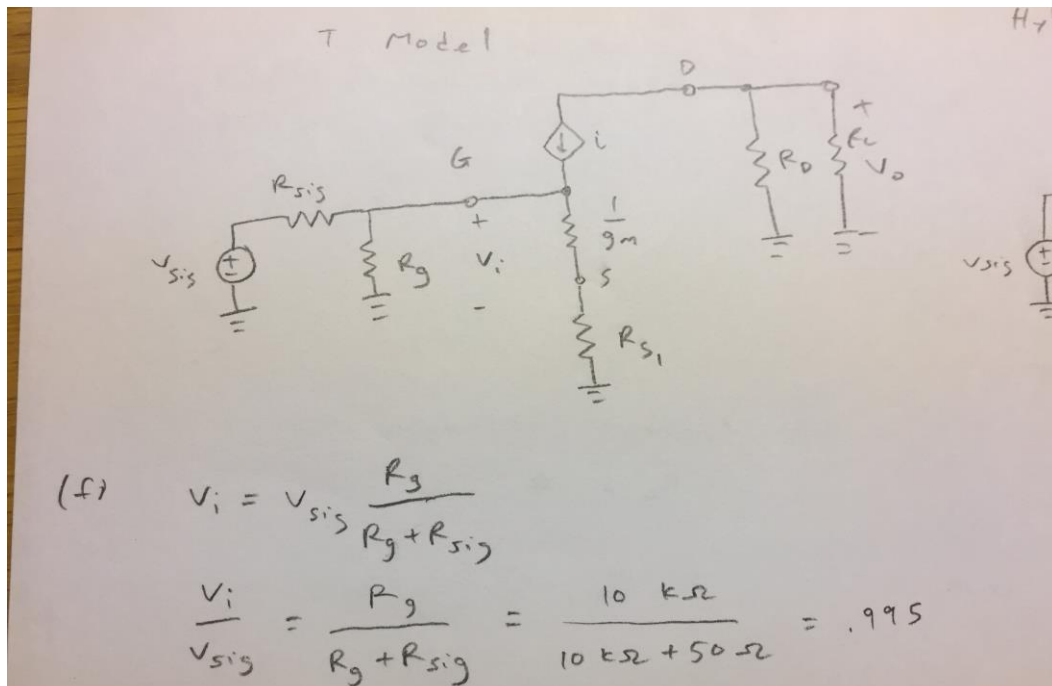 T Model
D
i
G
R_D
R_L
+
V_o
-
R_sig
V_sig
+
-
R_g
+
V_i
-
1/g_m
S
R_S1
V_sig
+
-
(f) V_i = V_sig R_g / (R_g + R_sig)
V_i / V_sig = R_g / (R_g + R_sig) = 10 kΩ / (10 kΩ + 50 Ω) = .995